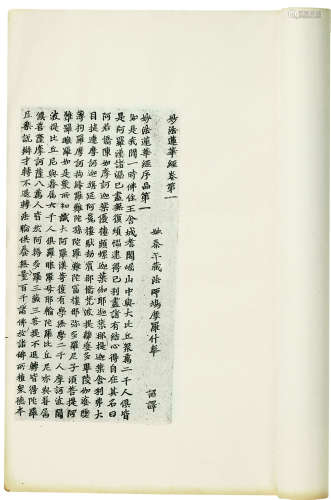 妙法蓮華經卷第一
姚秦三藏法師鳩摩羅什奉 詔譯
妙法蓮華經序品第一
如是我聞一時佛住王舍城耆闍崛山中與大比丘眾萬二千人俱皆
是阿羅漢諸漏已盡無復煩惱逮得己利盡諸有結心得自在其名曰
阿若憍陳如摩訶迦葉優樓頻螺迦葉伽耶迦葉那提迦葉舍利弗大
目揵連摩訶迦旃延阿㝹樓馱劫賓那憍梵波提離婆多畢陵伽婆蹉
薄拘羅摩訶拘絺羅難陀孫陀羅難陀富樓那彌多羅尼子須菩提阿
難羅睺羅如是眾所知識大阿羅漢等復有學無學二千人摩訶波闍
波提比丘尼與眷屬六千人俱羅睺羅母耶輸陀羅比丘尼亦與眷屬
俱菩薩摩訶薩八萬人皆於阿耨多羅三藐三菩提不退轉皆得陀羅
尼樂說辯才轉不退轉法輪供養無量百千諸佛於諸佛所殖眾德本